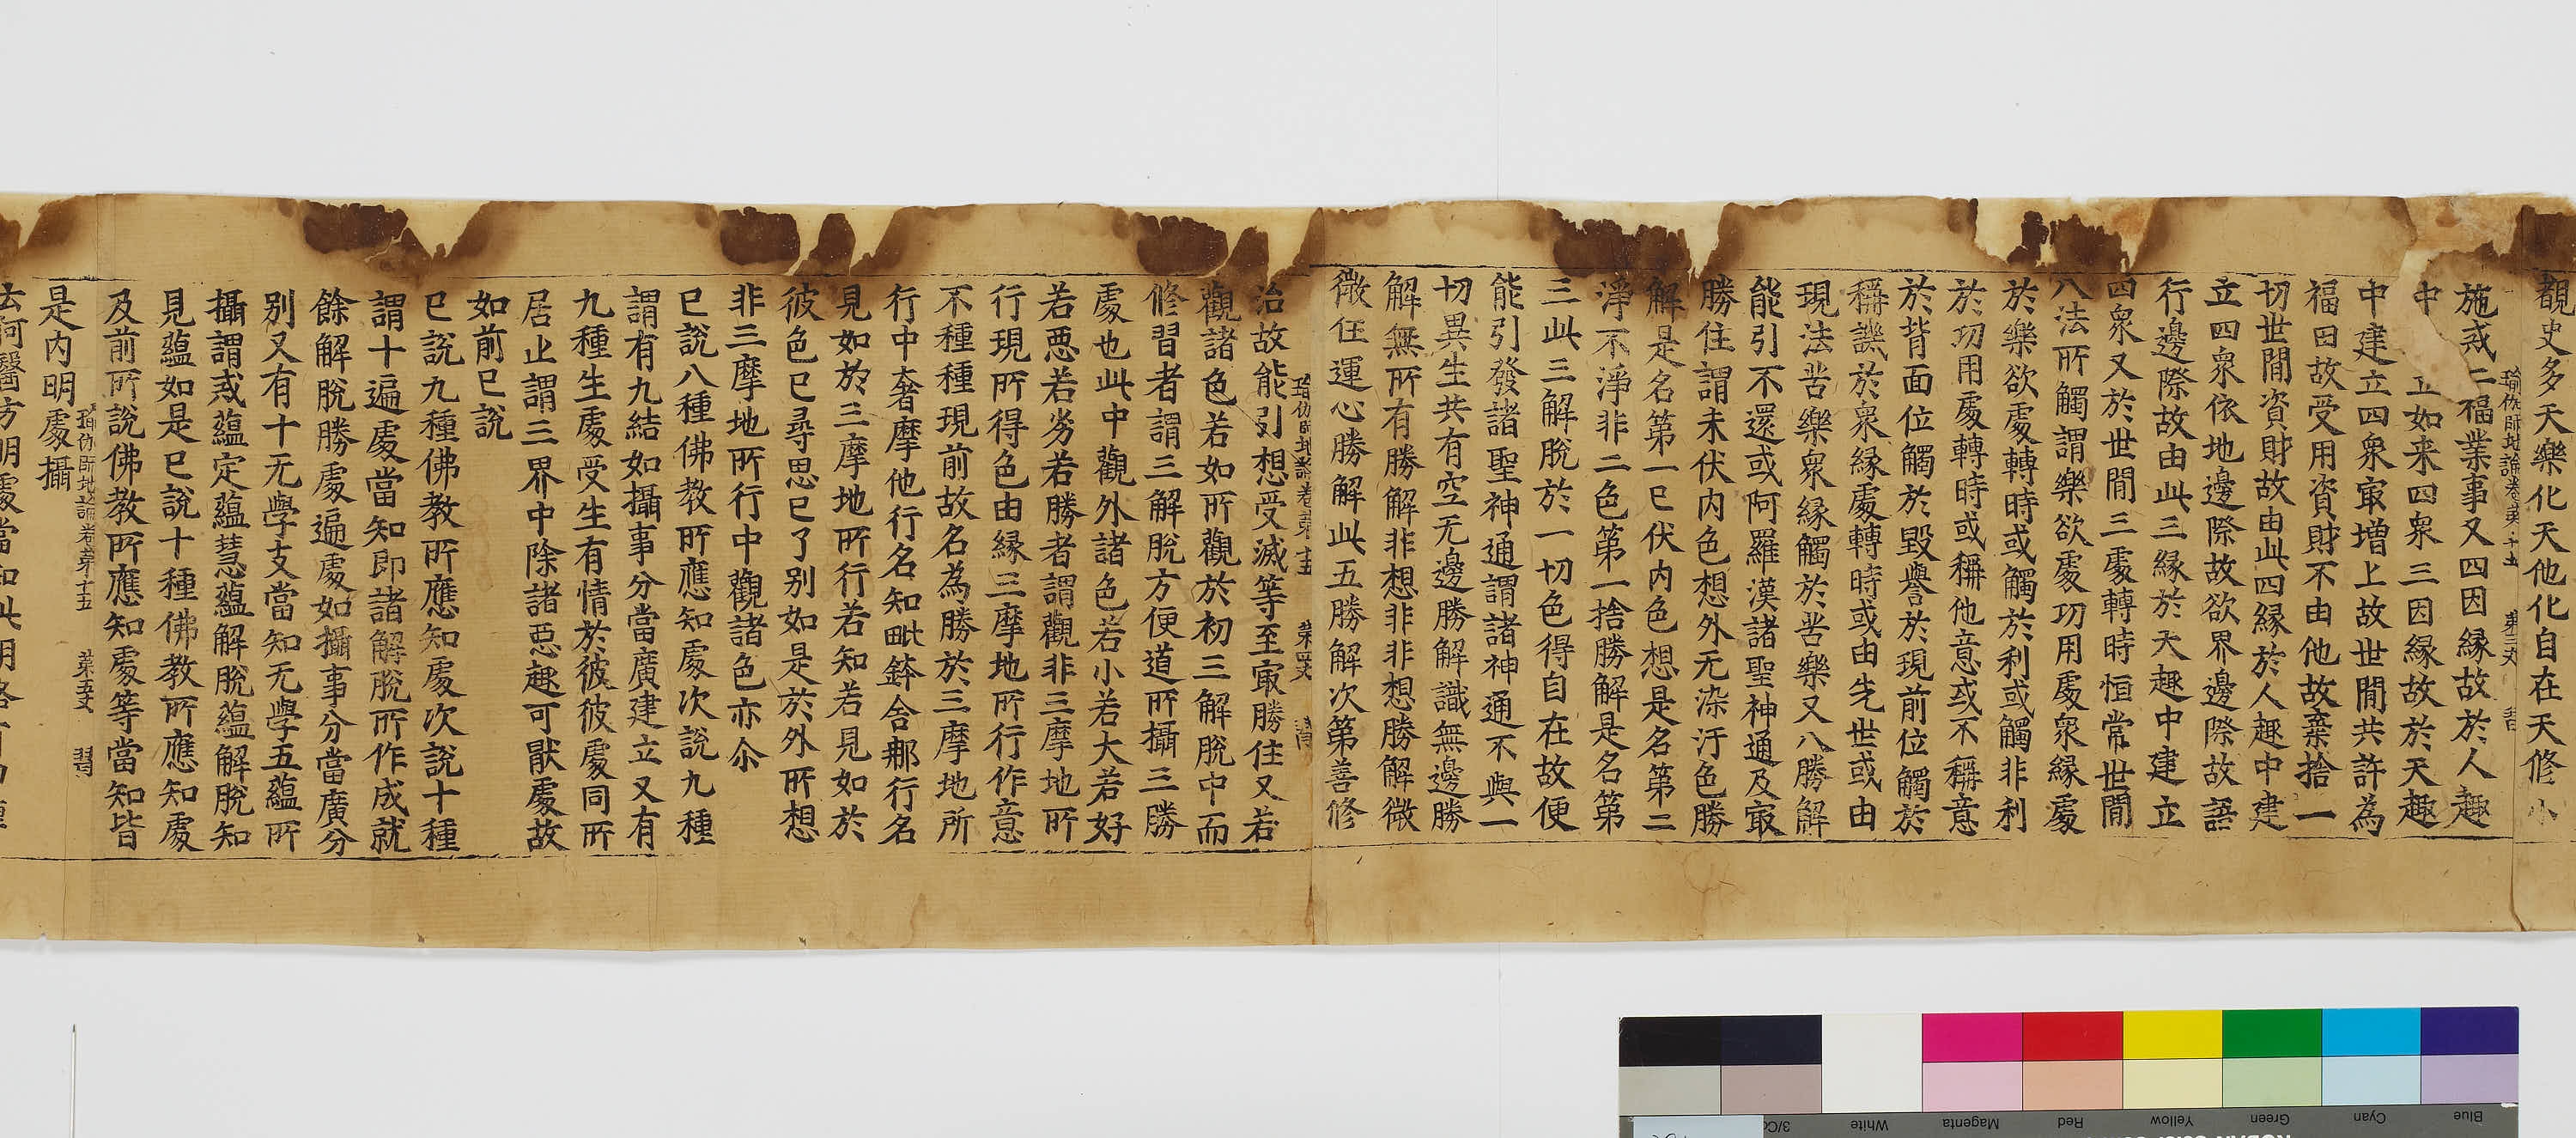 覩史多天樂化天他化自在天修小
瑜伽師地論卷第十五　第三丈　習
施戒二福業事又四因縁故於人趣
中　立如来四衆三因縁故於天趣
中建立四衆㝡增上故世間共許為
福田故受用資財不由他故棄捨一
切世間資財故由此四縁於人趣中建
立四衆依地邊際故欲界邊際故語
行邊際故由此三縁於天趣中建立
四衆又於世間三處轉時恒常世間
八法所觸謂樂欲處功用處衆縁處
於樂欲處轉時或觸於利或觸非利
於功用處轉時或稱他意或不稱意
於背面位觸於毀譽於現前位觸於
稱譏於衆縁處轉時或由先世或由
現法苦樂衆縁觸於苦樂又八勝解
能引不還或阿羅漢諸聖神通及㝡
勝住謂未伏内色想外无染汙色勝
解是名第一已伏内色想是名第二
淨不淨非二色第一捨勝解是名第
三此三解脫於一切色得自在故便
能引發諸聖神通謂諸神通不與一
切異生共有空无邊勝解識無邊勝
解無所有勝解非想非非想勝解微
微任運心勝解此五勝解次第善修
瑜伽師地論卷第十五　第四丈　習
治故能引想受滅等至㝡勝住又若
觀諸色若如所觀於初三解脫中而
修習者謂三解脫方便道所攝三勝
處也此中觀外諸色若小若大若好
若惡若劣若勝者謂觀非三摩地所
行現所得色由縁三摩地所行作意
不種種現前故名為勝於三摩地所
行中奢摩他行名知毗鉢舍那行名
見如於三摩地所行若知若見如於
彼色已尋思已了别如是於外所想
非三摩地所行中觀諸色亦尒
已說八種佛教所應知處次說九種
謂有九結如攝事分當廣建立又有
九種生處受生有情於彼彼處同所
居止謂三界中除諸惡趣可猒處故
如前已說
已說九種佛教所應知處次說十種
謂十遍處當知即諸解脫所作成就
餘解脫勝處遍處如攝事分當廣分
别又有十无學支當知无學五蘊所
攝謂戒蘊定蘊慧蘊解脫蘊解脫知
見蘊如是已說十種佛教所應知處
及前所說佛教所應知處等當知皆
瑜伽師地論卷第十五　第五丈　習
是内明處攝
云何醫方明處當知此明略有四種